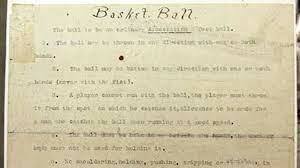 Basket Ball.
The ball to be an ordinary Association foot ball.
1. The ball may be thrown in any direction with one or both
hands.
2. The ball may be batted in any direction with one or both
hands (never with the fist).
3. A player cannot run with the ball, the player must throw
it from the spot on which he catches it, allowance to be made for
a man who catches the ball when running at a good speed.
4. The ball must be held in or between the hands, the
body must not be used for holding it.
5. No shouldering, holding, pushing, tripping or